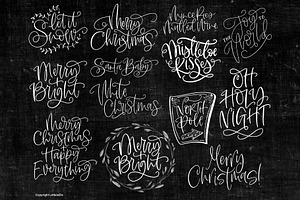 Let it
Snow
Merry
Christmas
Mince Pies
Mulled Wine
Mistletoe
Kisses
Joy
to the
World
Merry
Bright
Santa Baby
White
Christmas
OH
HOLY
NIGHT
North
Pole
Merry
Christmas
Happy
Everything
Merry
Bright
Merry
Christmas!